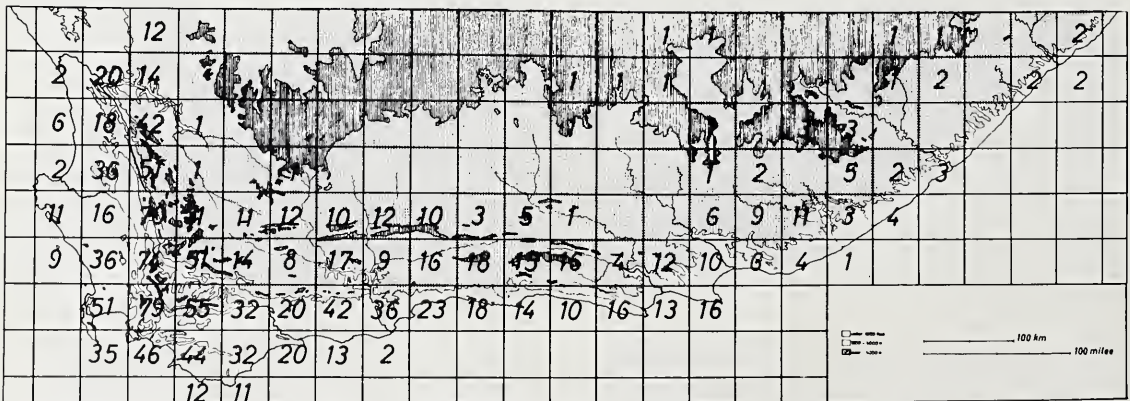 12 1 1 1 1 2
2 20 14 1 1 1 2 2 2
6 18 42 1 3
2 36 51 1 1 2 5 2 3
11 16 11 12 10 12 10 3 5 1 6 9 11 3 4
9 36 74 51 14 8 17 9 16 18 15 16 4 12 10 6 4 1
51 79 55 32 20 42 36 23 18 14 10 16 13 16
100 km
35 46 44 32 20 13 2
100 miles
12 11